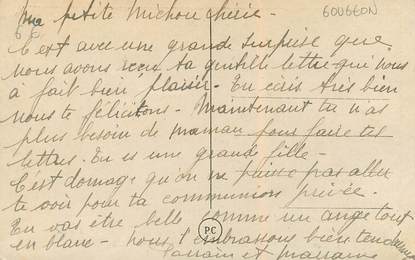 GOUGEON
Ma petite Michou chérie -
C'est avec une grande surprise que
nous avons reçu ta gentille lettre qui nous
à fait bien plaisir - Tu écris très bien
nous te félicitons - Maintenant tu n'as
plus besoin de maman pour faire tes
lettres. Tu es une grande fille -
C'est domage qu'on ne puisse pas aller
te voir pour ta communion privée.
Tu vas être belle comme un ange tout
en blanc - nous t'embrassons bien tendrement
Parrain et marraine
PC